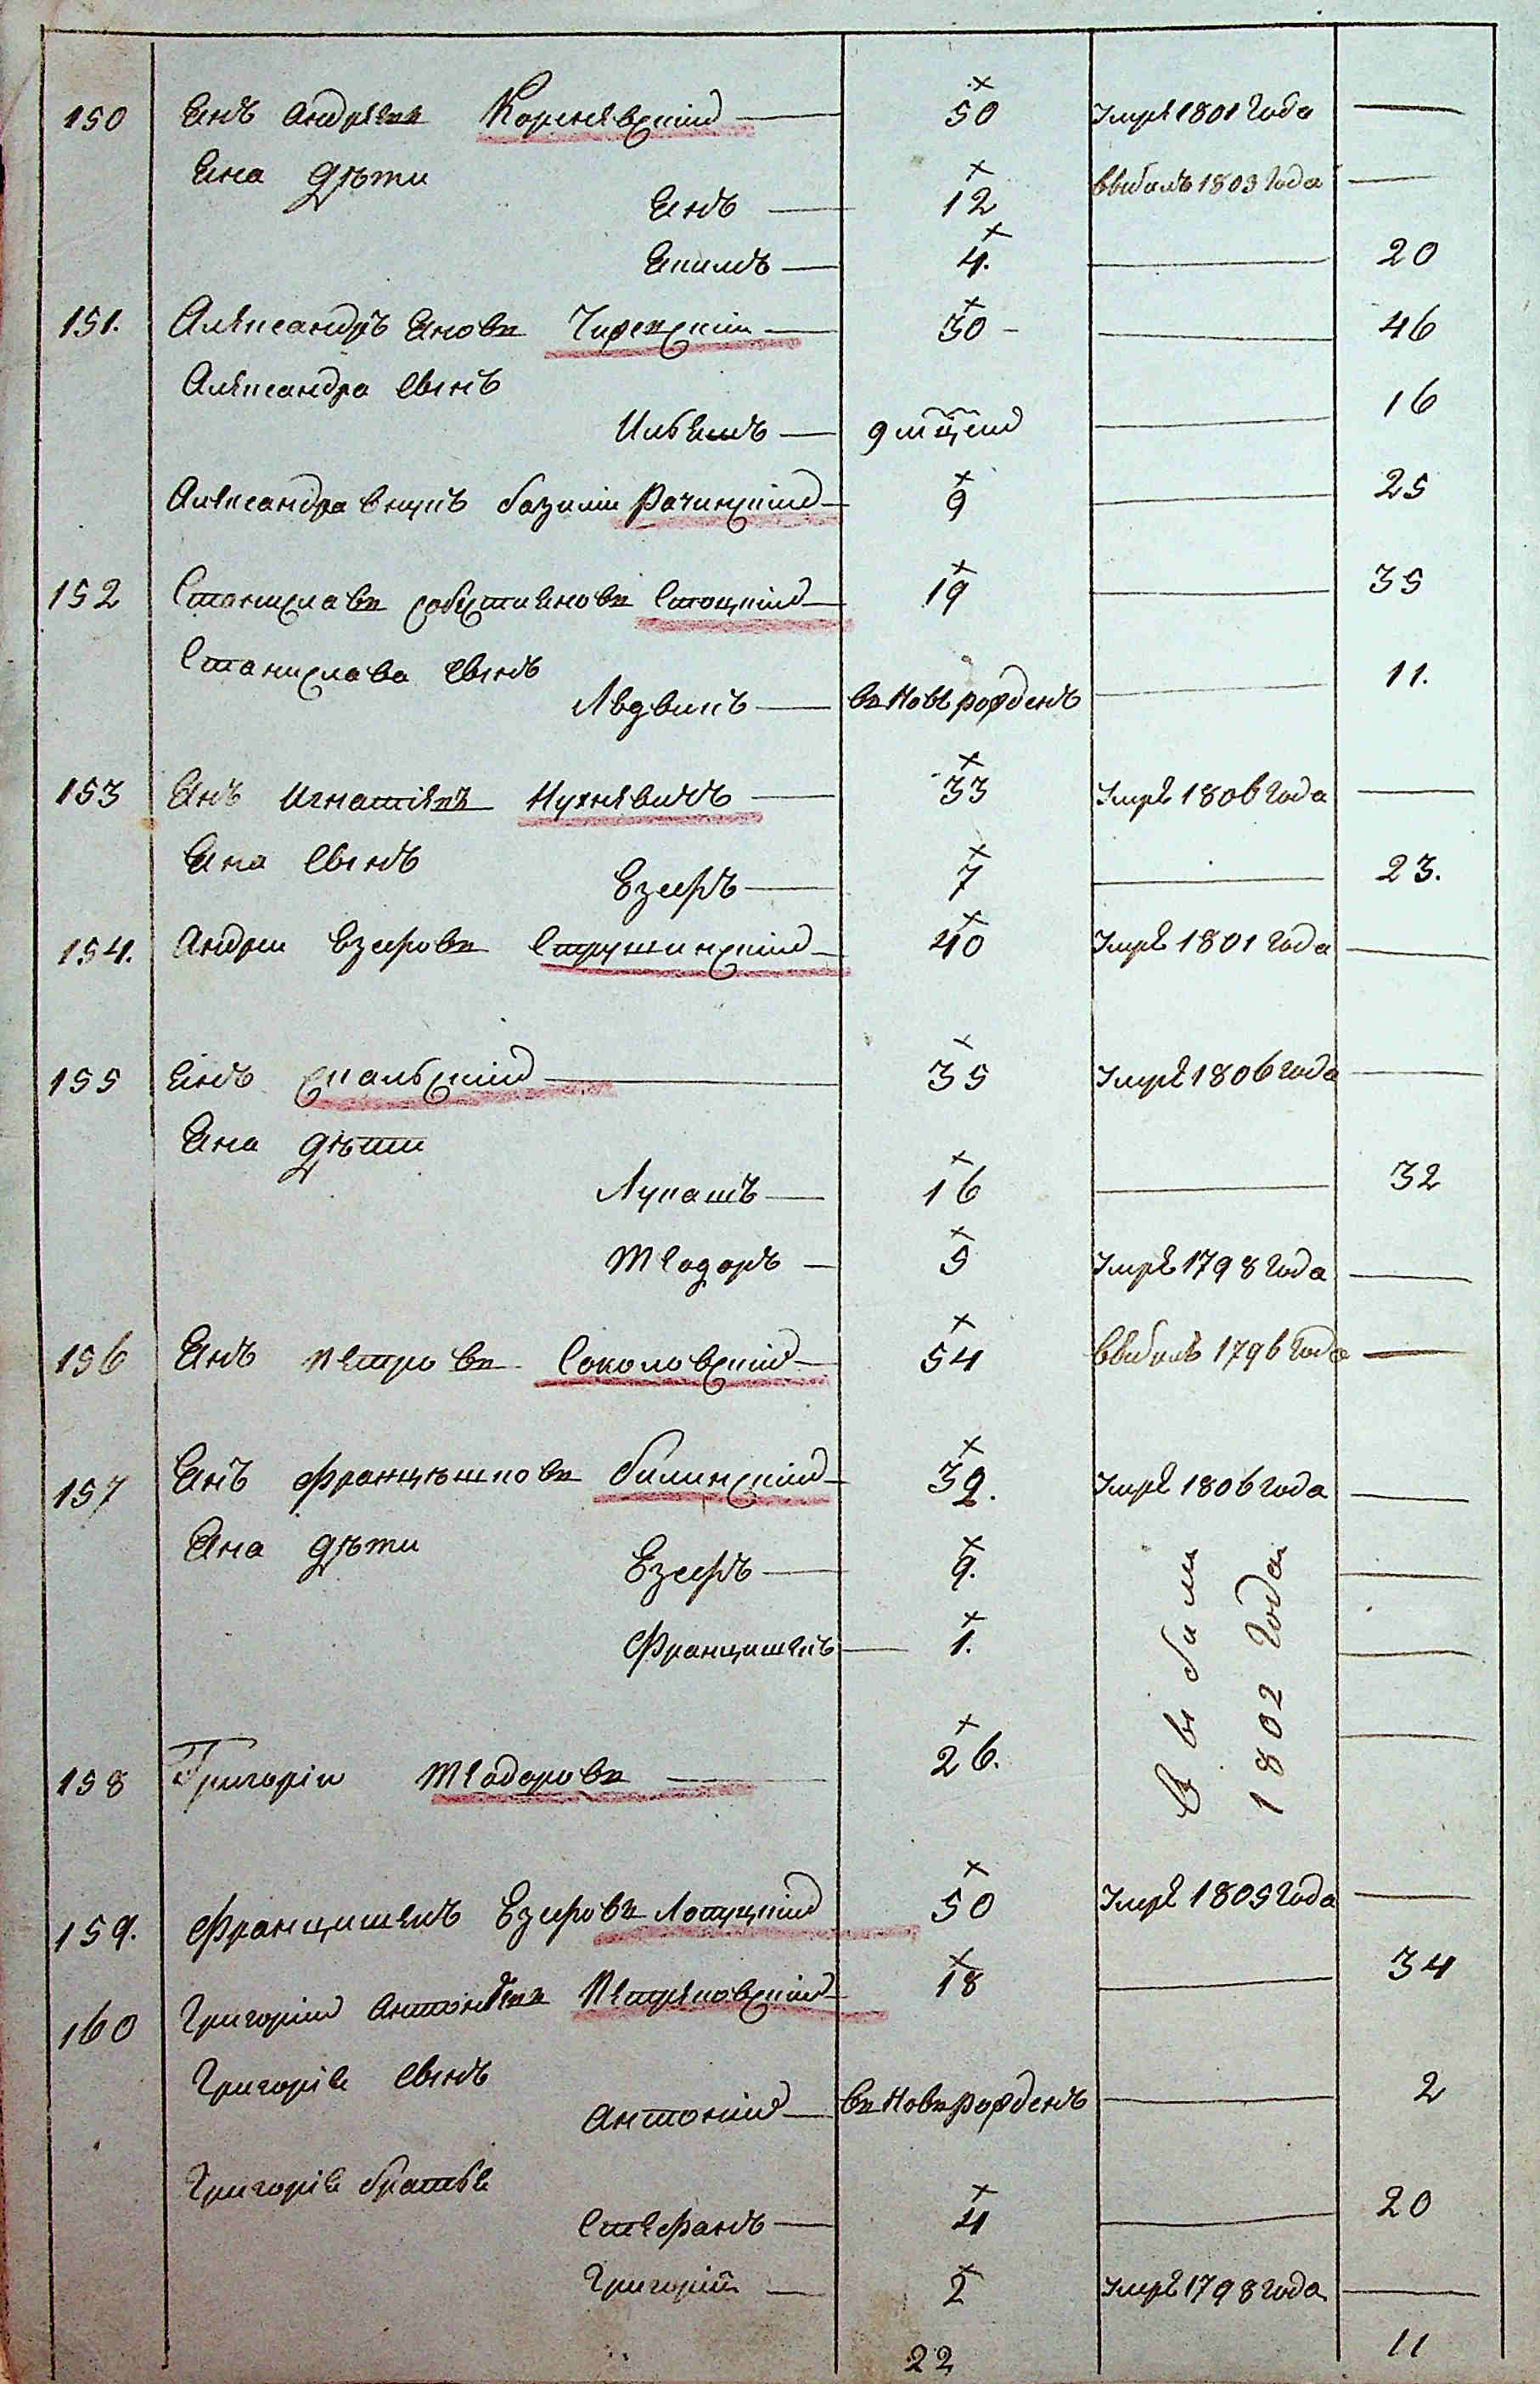 150 Янъ Андреевъ Корженевский 50 умре 1801 года
Яна дѣти
Янъ 12 выбылъ 1803 года
Якимъ 4. 20
151. Александръ Яновъ 30 46
Александра сынъ
16
Александра внукъ базили Рачинский 9 25
152 Станиславъ собестияновъ Стоцкий 19 35
Станислава сынъ
Людвикъ вновь рожденъ 11.
153 Янъ Игнатievъ 33 умре 1806 года
Яна сынъ
Езефъ 7 23.
154. Андреи Езефовъ Струшинский 40 умре 1801 года
155 Янъ Скальский 35 умре 1806 года
Яна дѣти
Лукашъ 16 32
Теодоръ 5 умре 1798 года
156 Янъ Петровъ Соколовский 54 выбылъ 1796 года
157 Янъ Францѣшковъ билинский 39. умре 1806 года
Яна дѣти
Езефъ 9. выбыли
Францишекъ 1. 1802 года
158 Григорiи Теодоровъ 26.
159. Францишекъ Езефовъ Лопуцкий 50 умре 1805 года
160 Григорий Антоновъ Петрековский 18 34
Григорiя сынъ
Антоний вновь рожденъ 2
Григорiя братья
Стефанъ 4 20
Григорий 2 умре 1798 года
22 11